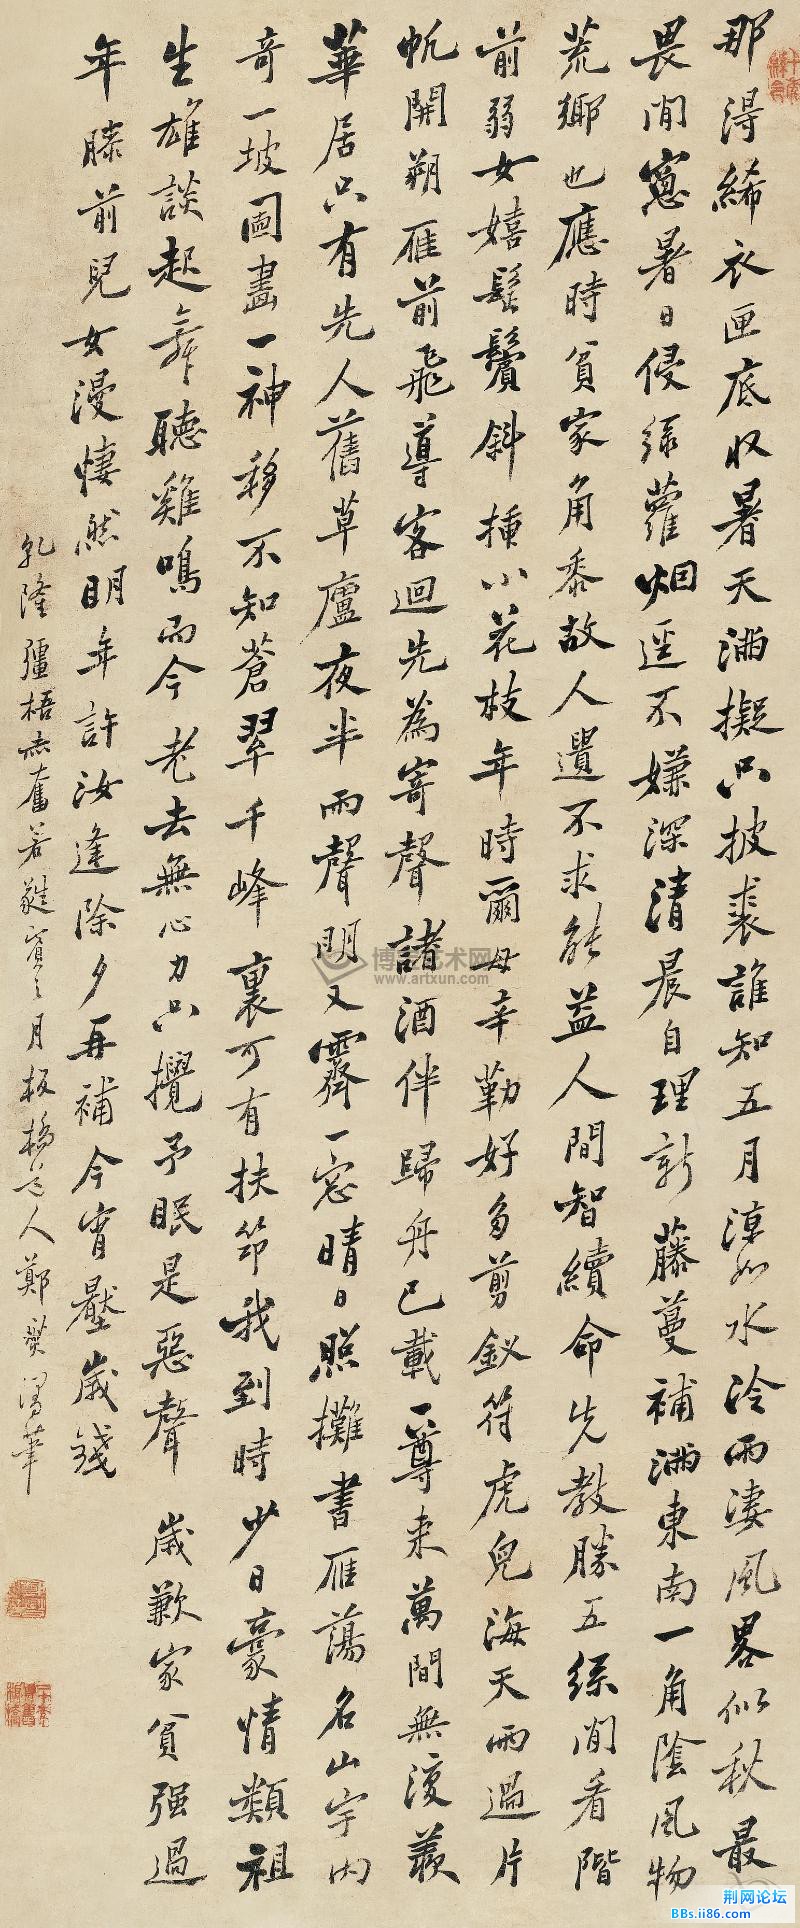 那得絺衣匣底收暑天滿擬只披裘誰知五月涼如水冷雨淒風畧似秋最
畏閒窓暑日侵綠蘿烟逕不嫌深清晨自理新藤蔓補滿東南一角陰風物
荒鄉也應時貧家角黍故人遺不求能益人間智續命先教勝五絲閒看階
前弱女嬉鬆鬢斜揷小花枝年時爾母辛勤好多剪釵符虎兒海天雨過片
帆開朔雁前飛導客迴先為寄聲諸酒伴歸舟已載一尊來萬間無復羨
華居只有先人舊草廬夜半雨聲明又霽一窓晴日照攤書雁蕩名山宇內
奇一坡圖畫一神移不知蒼翠千峰裏可有扶笻我到時少日豪情類祖
生雄談起舞聽雞鳴而今老去無心力只攪予眠是惡聲 歲歉家貧强過
年膝前兒女漫悽然明年許汝逢除夕再補今宵壓歲錢
乾隆彊梧赤奮若蕤賓之月板橋道人鄭燮漫筆
博宝艺术网
www.artxun.com
荆网论坛
BBs.ii86.com